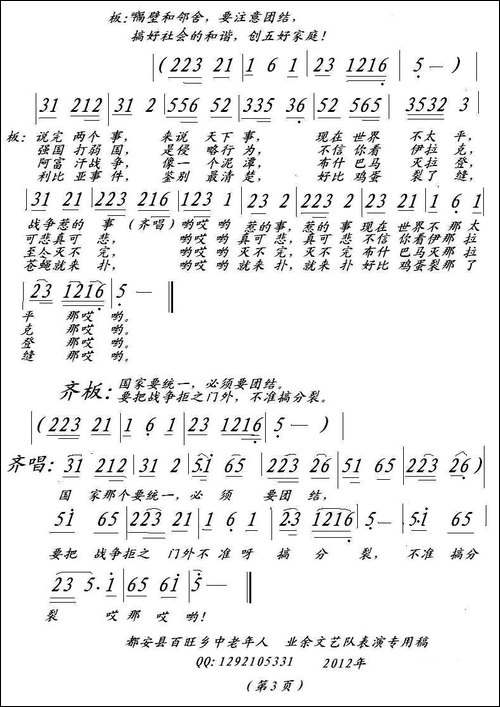 板:隔壁和邻舍，要注意团结，
搞好社会的和谐，创五好家庭！
(223 21 | 161 | 23 1216 | 5 — )
31 212 | 31 2 | 556 52 | 335 36 | 52 565 | 3532 3 |
板：说完 两个 事， 来说 天下 事， 现在 世界 不太 平，
强国 打弱 国， 是侵 略行 为， 不信 你看 伊拉 克，
阿富 汗战 争， 像一 个泥 潭， 布什 巴马 灭拉 登，
利比 亚事 件， 鉴别 最清 楚， 好比 鸡蛋 裂了 缝，
31 21 | 223 216 | 123 1 | 23 2 | 223 2 | 23 21 | 1 6 1 |
战争惹的 事 （齐唱）哟哎 哟 惹的事，惹的 事 现在 世界不 那太
可悲真可 悲， 哟哎 哟 真可 悲，真可 悲 不信 你看伊 那拉
至今灭不 完， 哟哎 哟 灭不 完，灭不 完 布什 巴马灭 那拉
苍蝇就来 扑， 哟哎 哟 就来 扑，就来 扑 好比 鸡蛋裂 那了
23 1216 | 5 — ‖
平 那哎 哟。
克 那哎 哟。
登 那哎 哟。
缝 那哎 哟。
齐板：国家要统一，必须要团结。
要把战争拒之门外，不准搞分裂。
(223 21 | 1 6 1 | 23 1216 | 5 — )
齐唱：31 212 | 31 2 | 5i 65 | 223 26 | 51 65 | 223 26 )
国 家那个要统一，必 须 要团 结，
5i 65 | 223 21 | 1 6 1 | 2·3 1216 | 5 — | 5·i 65 |
要把 战争拒之 门外不 准呀 搞 分 裂， 不准 搞分
23 5·i | 65 6i | 5 — ‖
裂 哎那 哎 哟！
都安县百旺乡中老年人 业余文艺队表演专用稿
QQ:1292105331 2012年
（第3页）